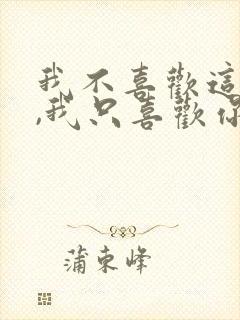 我不喜歡這
,我只喜歡你
蒲東峰